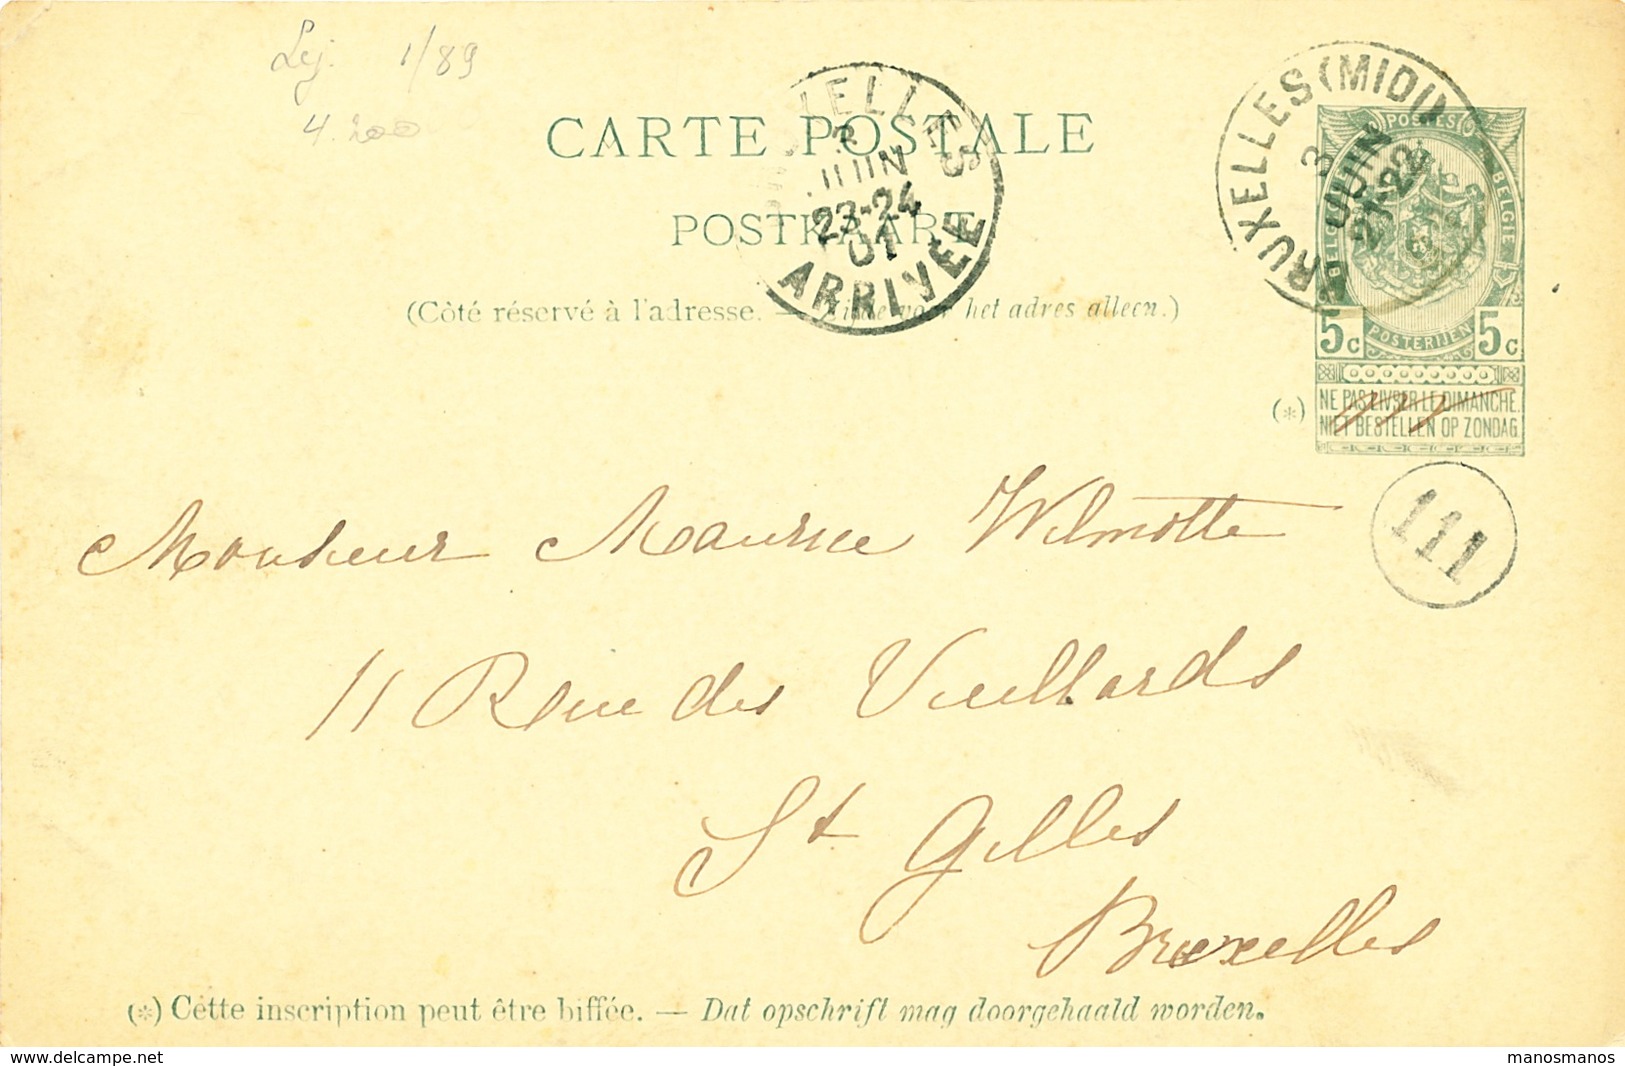 Lej. 1/89
4.200
CARTE POSTALE
POSTKAART
(Côté réservé à l'adresse. — Zijde voor het adres alleen.)
BRUXELLES ARRIVÉE
JUIN
23-24
01
BRUXELLES (MIDI)
3
JUIN
21-22
POSTES
BELGIQUE BELGIË
POSTERIJEN
5c 5c
(*) NE PAS LIVRER LE DIMANCHE.
NIET BESTELLEN OP ZONDAG.
111
Monsieur Maurice Wilmotte
11 Rue des Vieillards
St Gilles
Bruxelles
(*) Cette inscription peut être biffée. — Dat opschrift mag doorgehaald worden.
delcampe.net
manosmanos